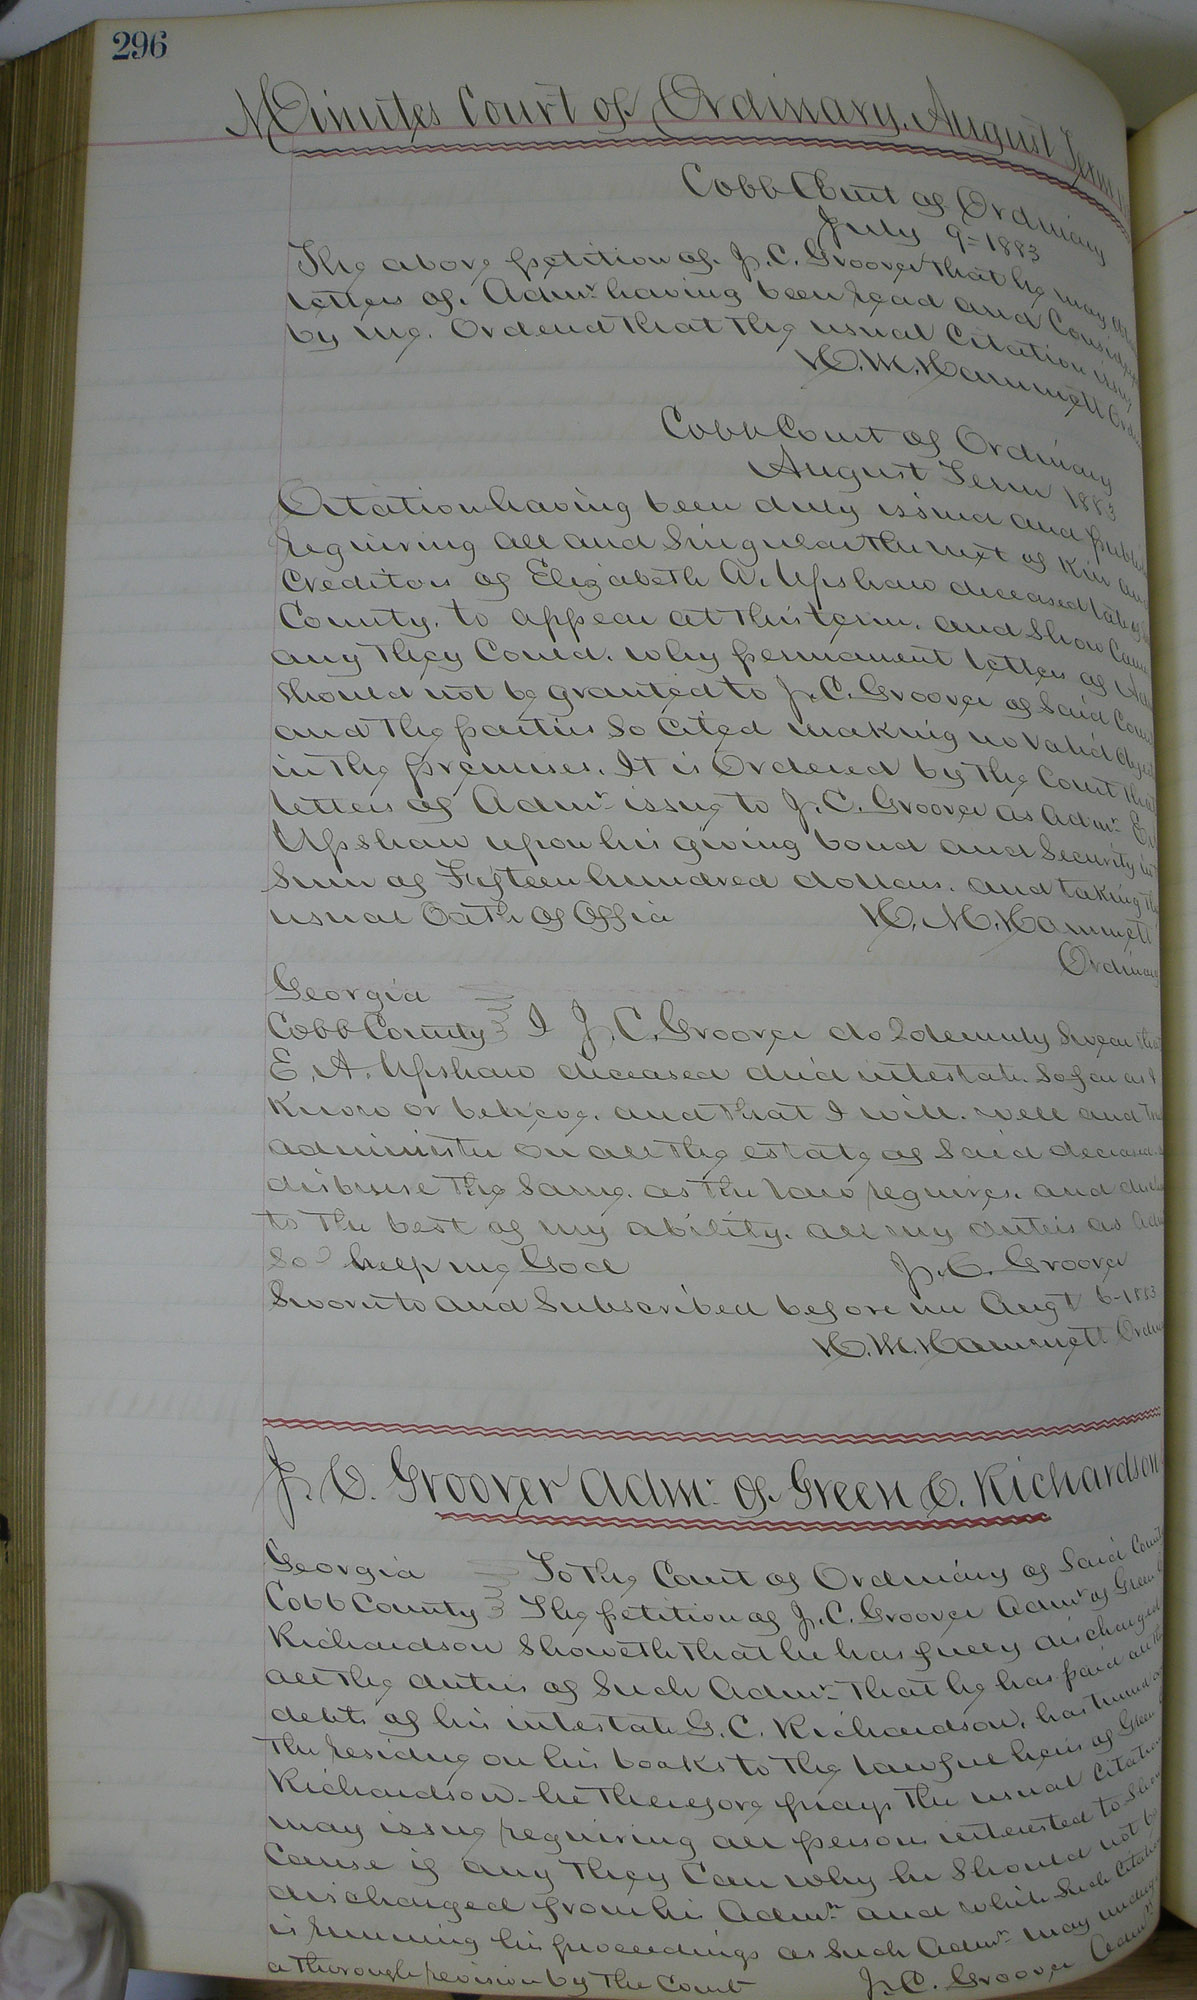 296
Minutes Court of Ordinary, August Term
Cobb Court of Ordinary
July 9- 1883
The above petition of J. C. Groover that he may
letters of Admr having been read and Consid
by me. Ordered that the usual Citation issue
H. M. Hammett Ord
Cobb Court of Ordinary
August Term 1883
Citation having been duly issued and publis
requiring all and Singular the next of Kin and
Creditors of Elizabeth A. Upshaw deceased late of
County, to appear at this term, and Show Cause
any they Could, why permanent letters of Ad
Should not be granted to J. C. Groover of Said Coun
and the parties So Cited making no Valid Object
in the premises. It is Ordered by the Court that
letters of Admr issue to J. C. Groover as Admr E.
Upshaw upon his giving bond and Security in
Sum of Fifteen hundred dollars, and taking the
usual Oath of Office
H. M. Hammett
Ordinary
Georgia
Cobb County } I J. C. Groover do Solemnly Swear that
E. A. Upshaw deceased died intestate So far as I
Know or believe, and that I will, well and tru
administer on all the estate of Said deceased
disburse the Same, as the law requires, and disc
to the best of my ability, all my duties as Ad
So help me God
J. C. Groover
Sworn to and Subscribed before me Augt 6-1883
H. M. Hammett Ordin
J. C. Groover Admr of Green C. Richardson
Georgia } To the Court of Ordinary of Said County
Cobb County } The petition of J. C. Groover Admr of Green C
Richardson Showeth that he has fully discharged
all the duties of Such Admr. That he has paid all the
debts of his intestate G. C. Richardson, has turned
the residue on his books to the lawful heirs of Green
Richardson. he therefore prays the usual Citation
may issue requiring all persons interested to Show
Cause if any they Can why he Should not be
discharged from his Admn and while Such Citation
is running his proceedings as Such Admr may undergo
a thorough revision by the Court
J. C. Groover Admr